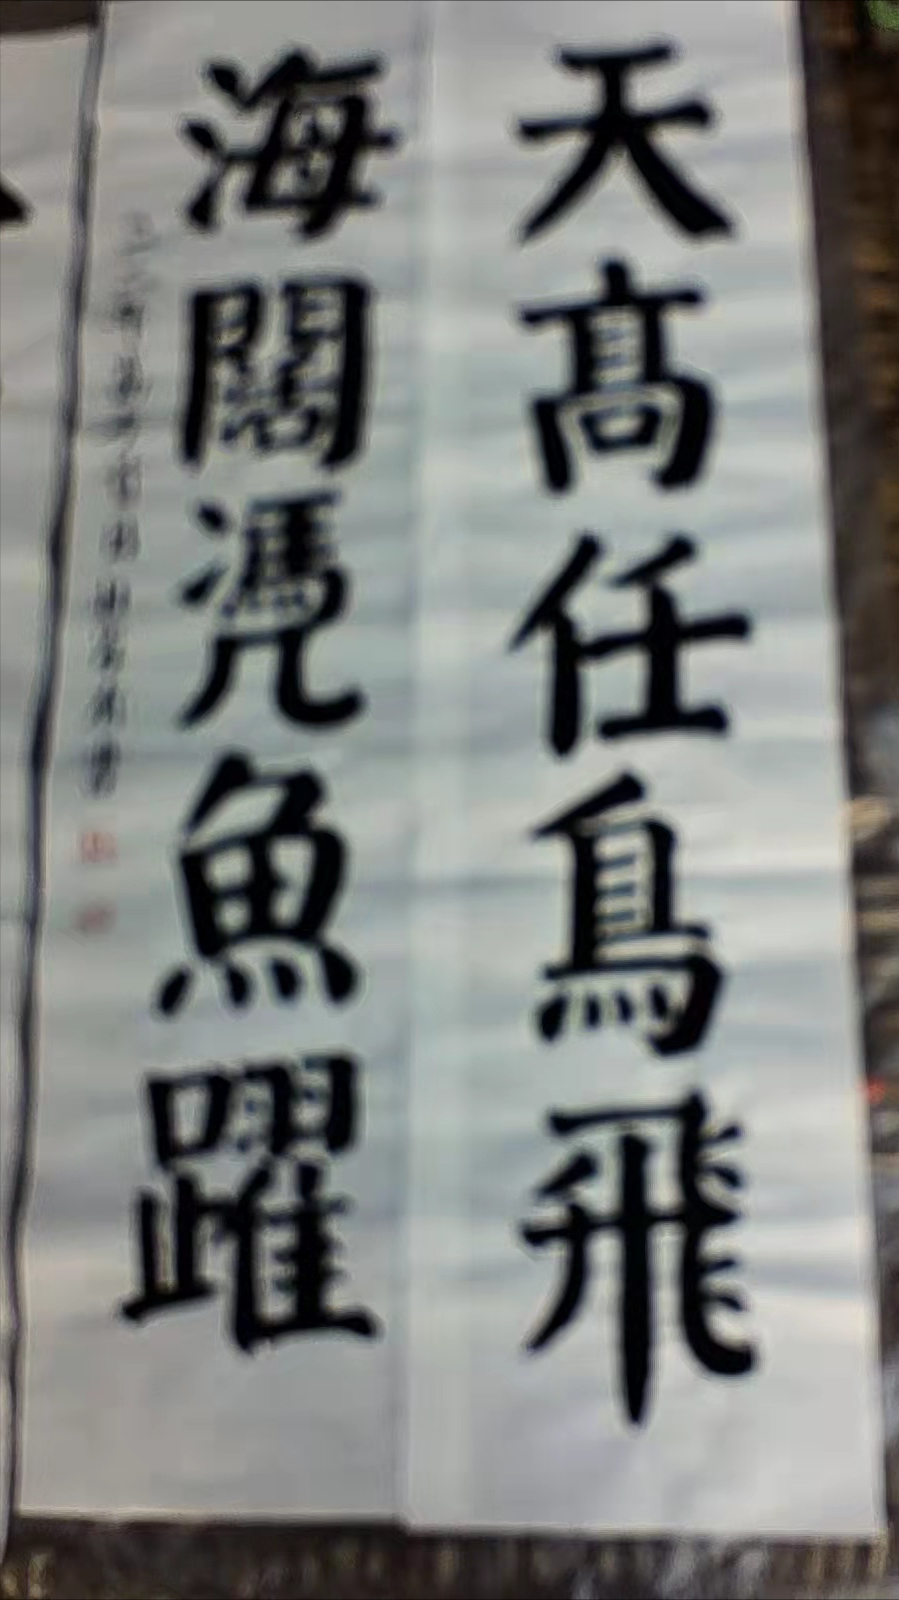 天高任鳥飛
海闊凴魚躍